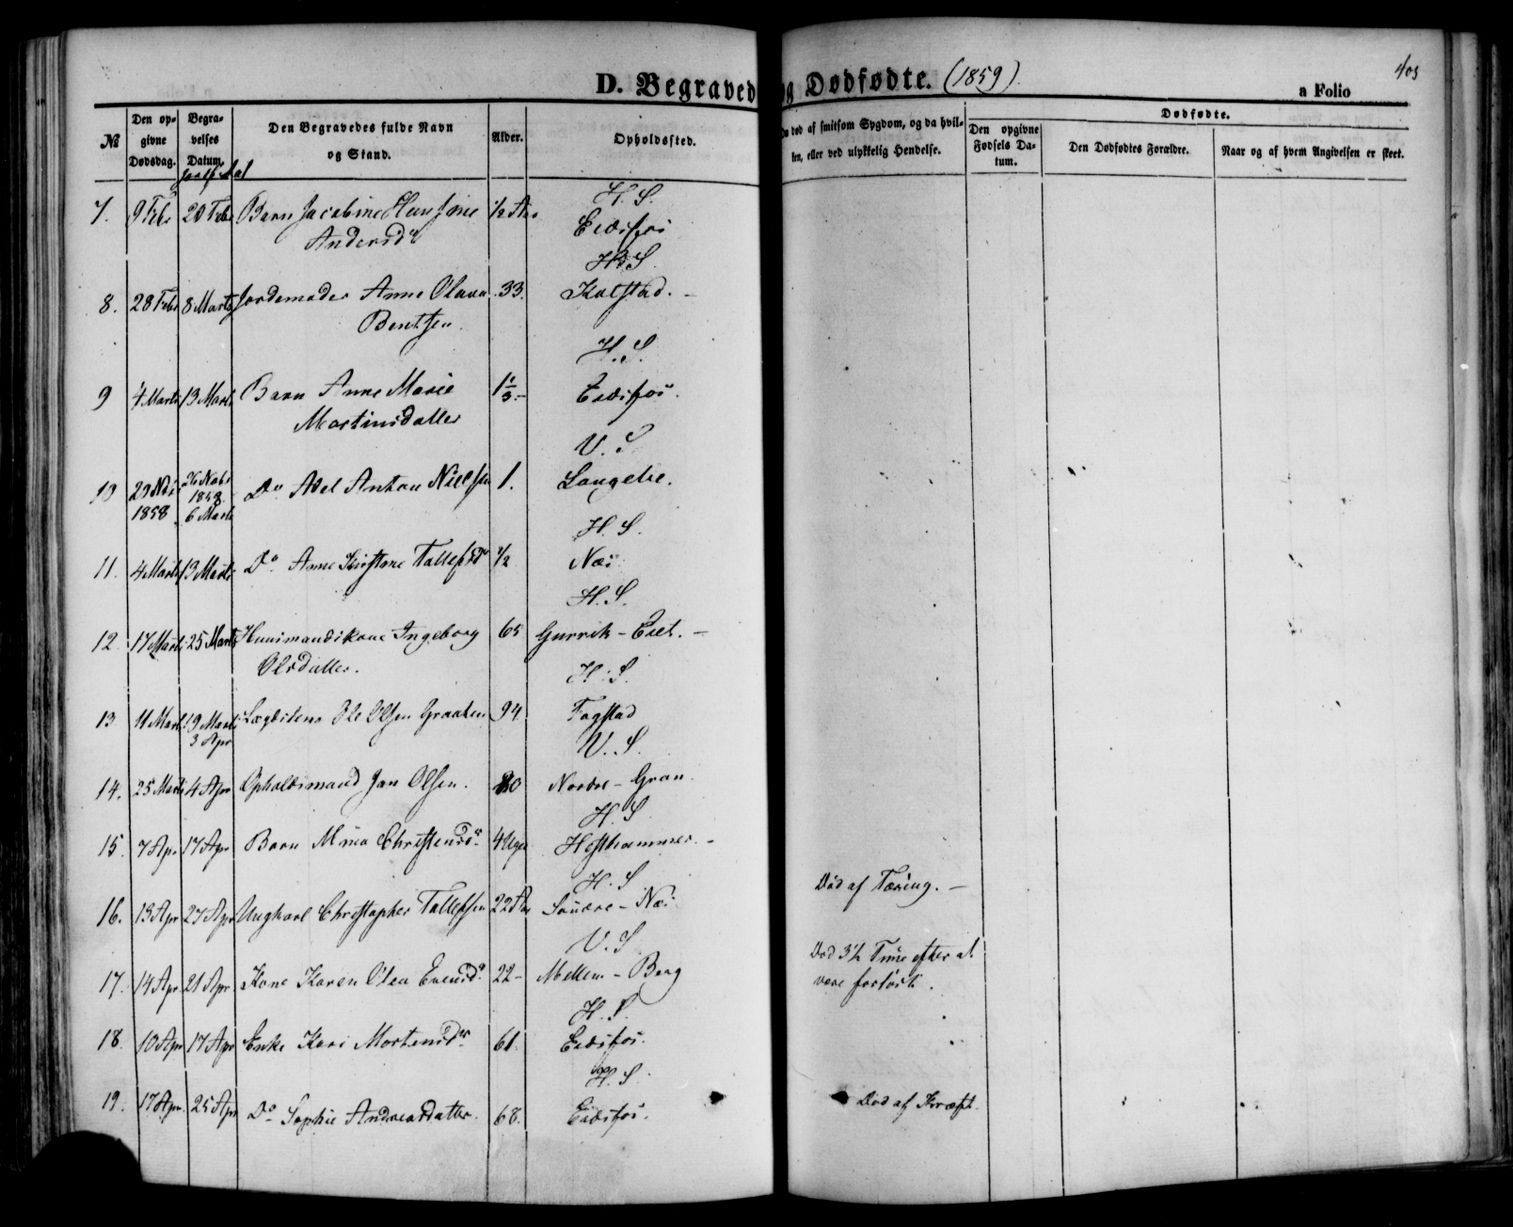 D. Begravede og Dødfødte. (1859)
a Folio
№
Den opgivne Dødsdag.
Begravelses Datum.
Den Begravedes fulde Navn og Stand.
Alder.
Opholdssted.
Om død af smitsom Sygdom, og da hvilken, eller ved ulykkelig Hendelse.
Dødfødte.
Den opgivne Fødsels Datum.
Den Dødfødtes Forældre.
Naar og af hvem Angivelsen er skeet.
H. S.
7. 9 Febr 20 Febr Barn Jacobine Hansine ½ Aar Eidsfos
Andersdr
H. S.
8. 28 Febr 8 Marts Jordemoder Anne Olava 33. Kolstad.
Bentsen.
H. S.
9 4 Marts 13 Marts Barn Anne Marie 1⅓ Eidsfos.
Martinsdatter
V. S.
10 29 Nov 1858 6 Marts Do Axel Anton Nielsen 1. Langelie.
H. S.
11. 4 Marts 13 Marts Do Anne Kirstine Tallefsdr ½ Næs
H. S.
12. 17 Marts 25 Marts Huusmandskone Ingeborg 65 Gurrik-Eiet.
Olsdatter.
H. S.
13 11 Marts 19 Marts 3 Apr Lægdslem Ole Olsen Graaten 94 Fagstad
V. S.
14. 25 Marts 4 Apr Opholdsmand Jan Olsen. 80 Nordre-Gran.
H. S.
15. 7 Apr 17 Apr Barn Mina Christensdr. 4 Uger Hesthammer.
H. S.
16. 13 Apr 27 Apr Ungkarl Christopher Tallefsen 22 Aar Søndre-Næs Død af Tæring.
V. S.
17. 14 Apr 21 Apr Kone Karen Olea Evensdr. 22 Mellem-Berg Død 3½ Time efter at
være forløst.
H. S.
18. 10 Apr 17 Apr Enke Kari Mortensdr. 61. Eidsfos.
H. S.
19. 17 Apr. 25 Apr Do Sophie Andreasdatter. 68. Eidsfos. Død af Kræft.